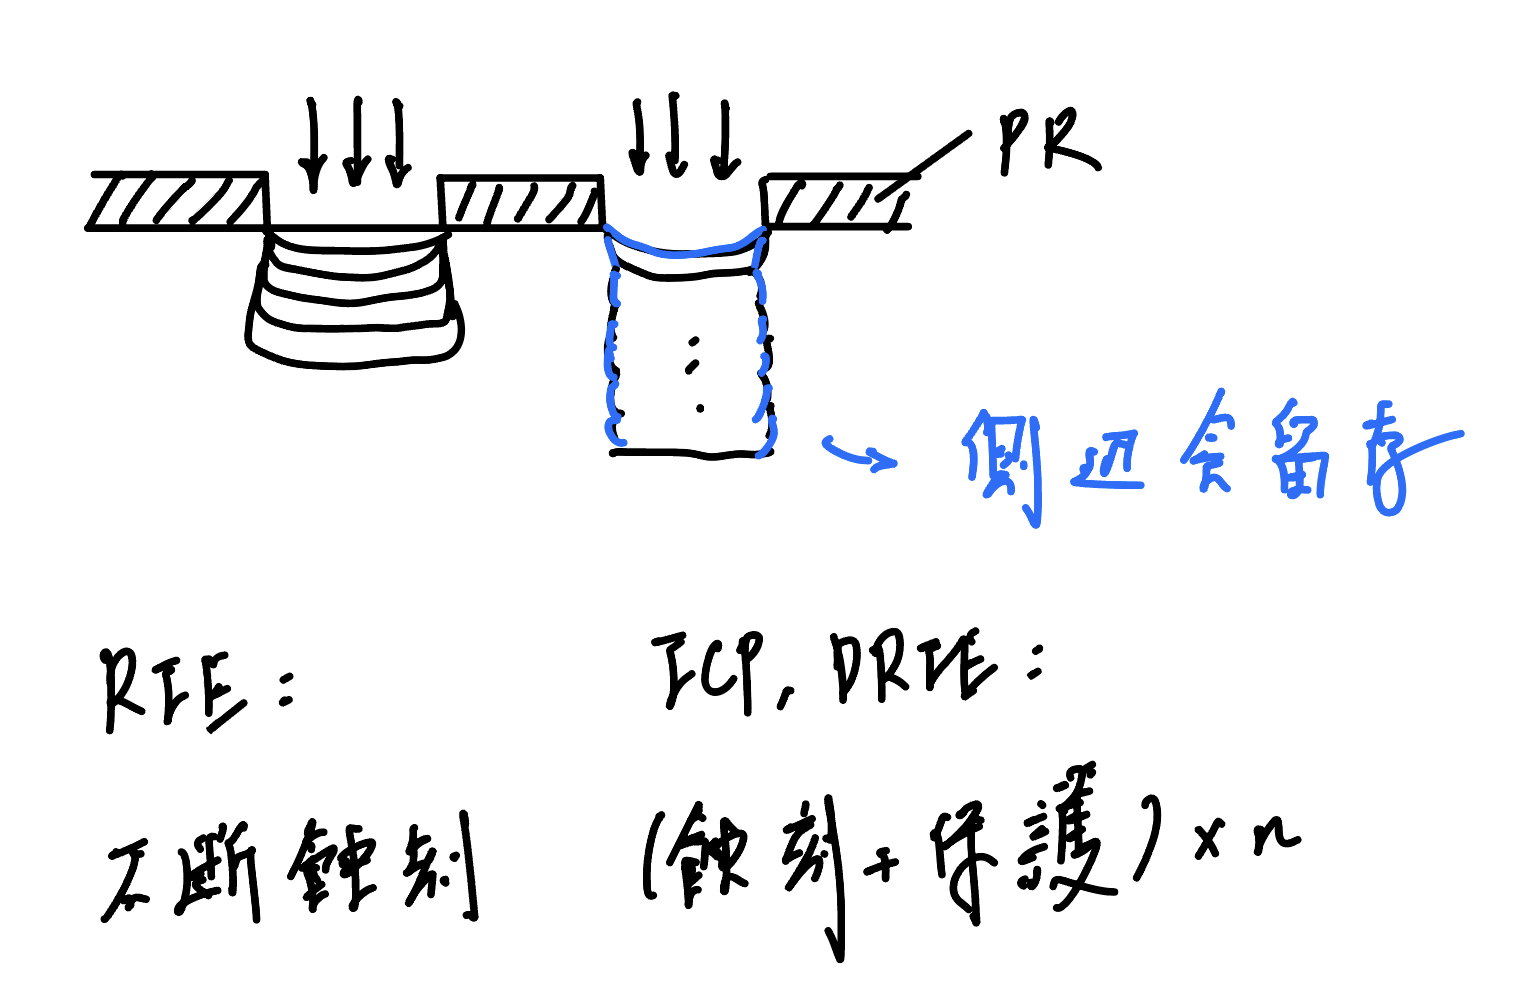 PR
側边会留存
RIE:
不断蝕刻
ICP, DRIE:
(蝕刻+保護)×n